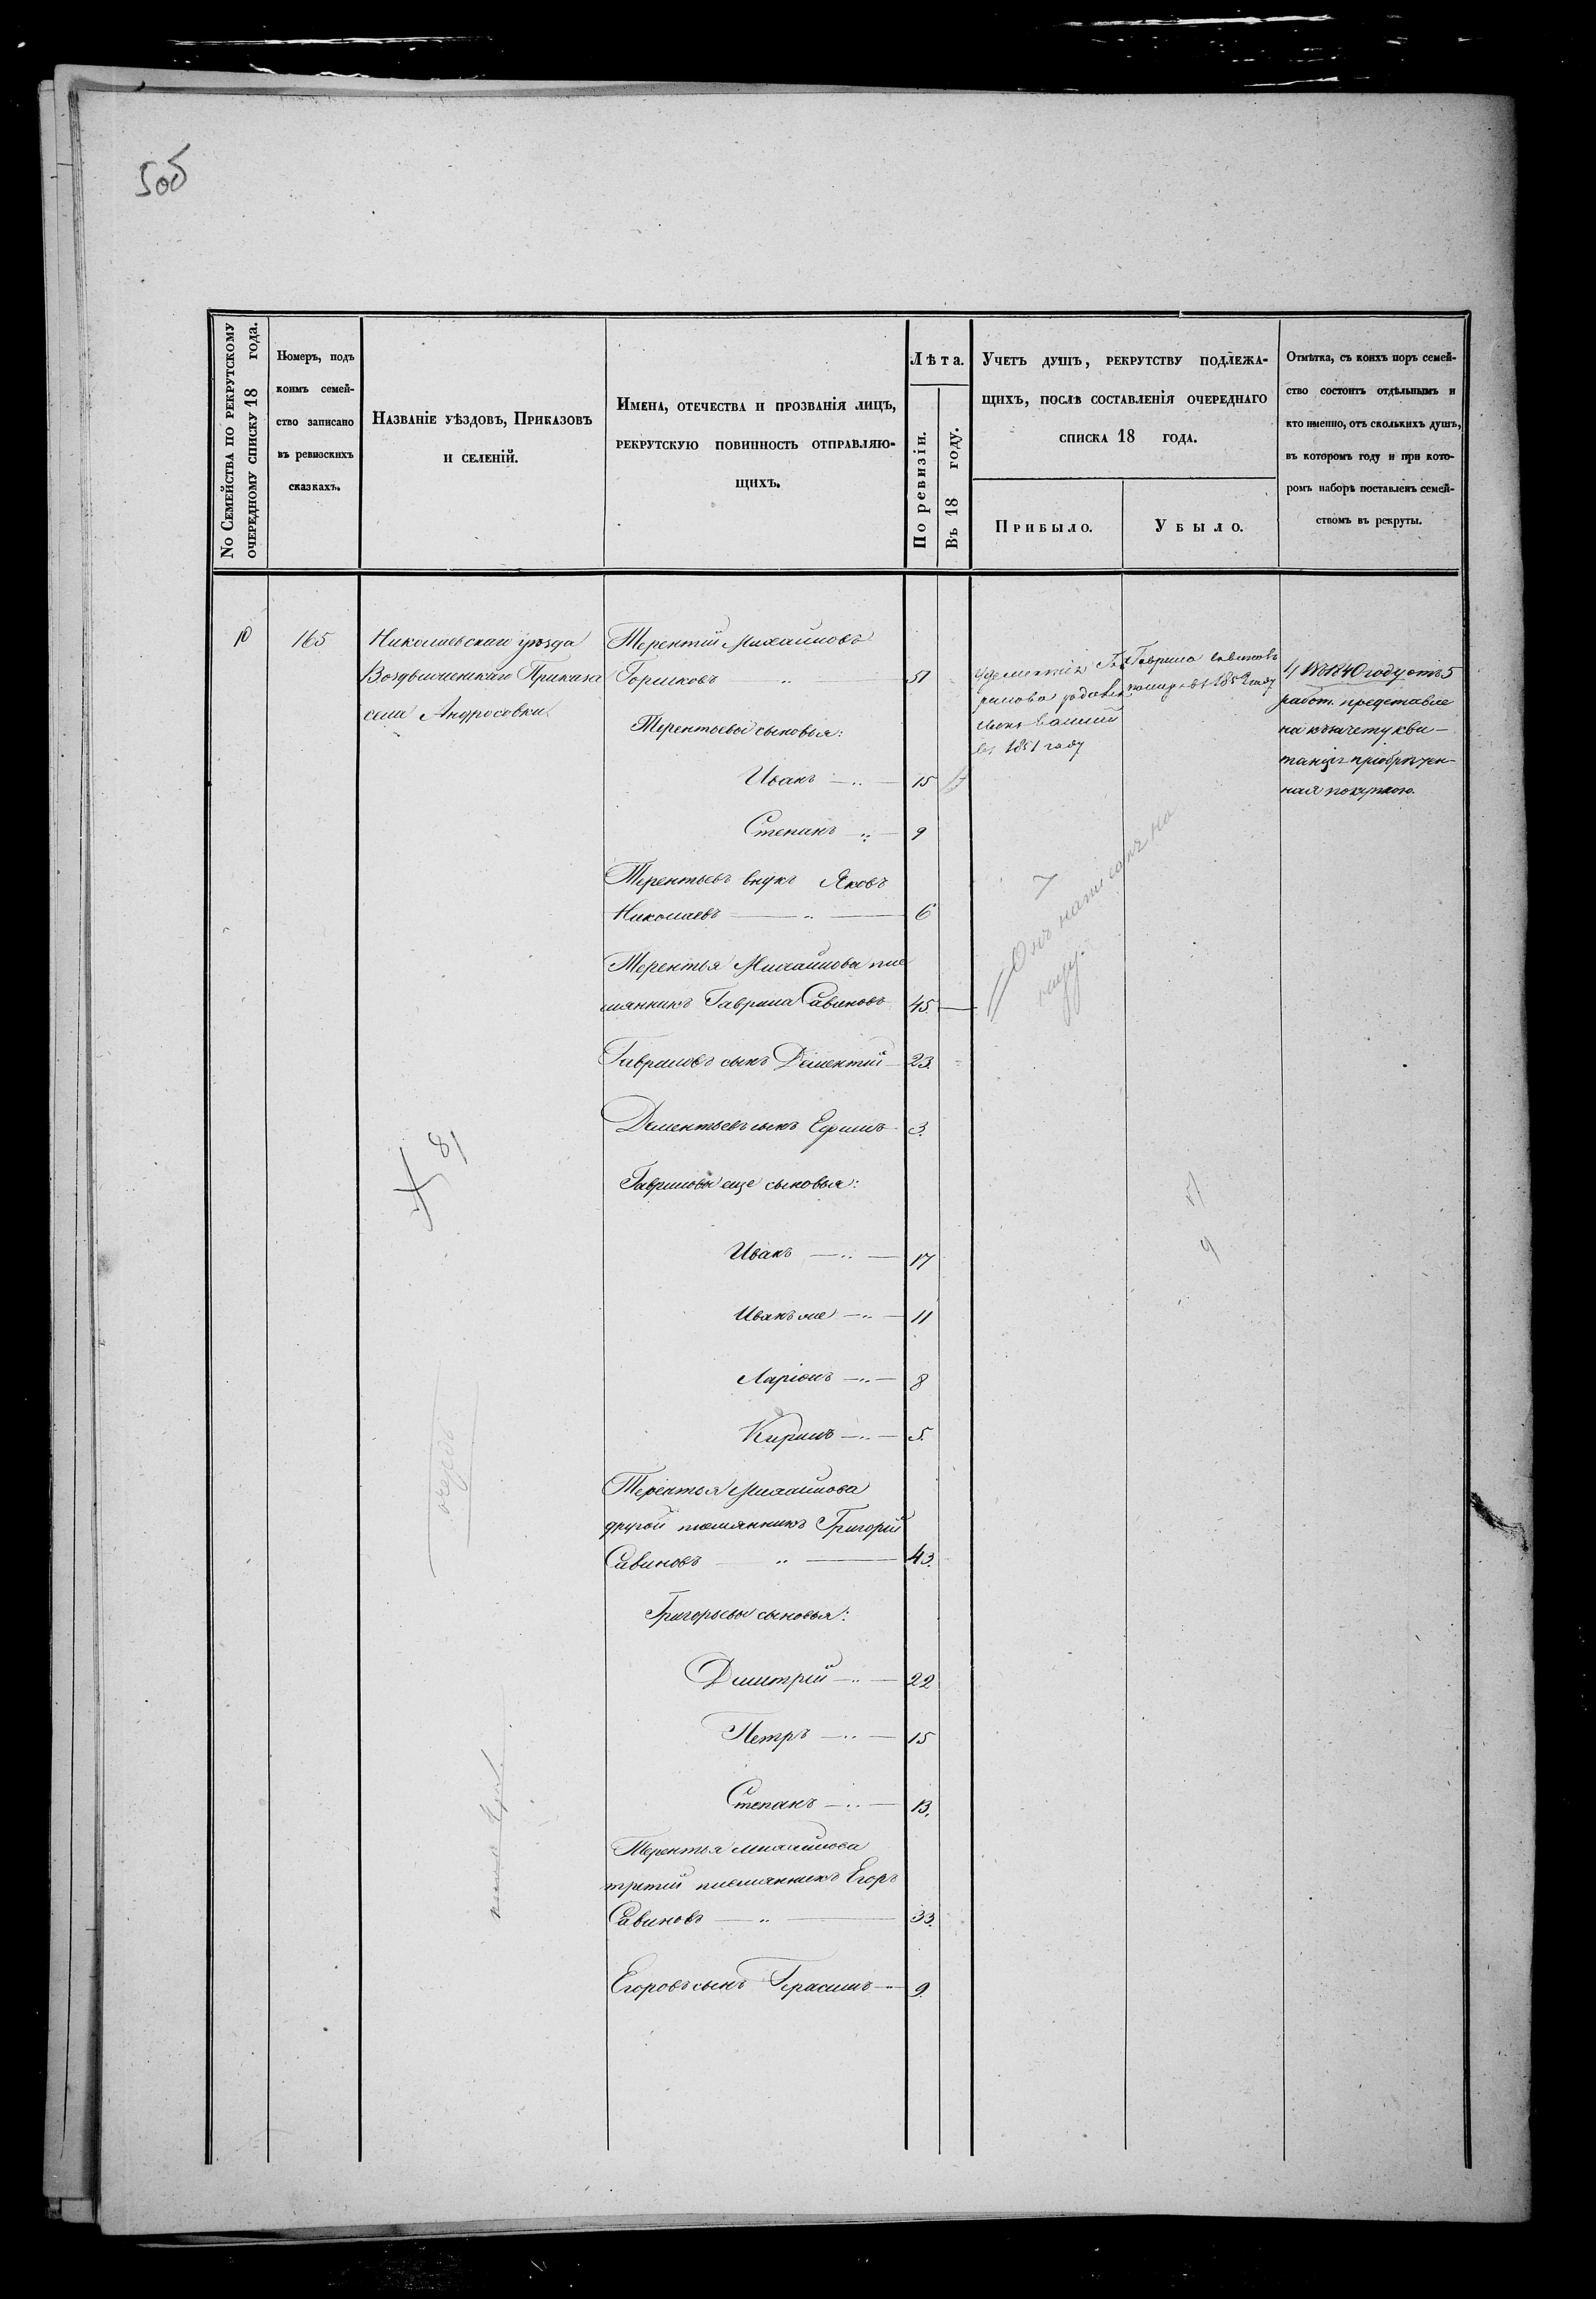 5об
No Семейства по рекрутскому
очередному списку 18 года.
Номеръ, подъ
коимъ семей-
ство записано
въ ревизскихъ
сказкахъ.
Названіе уѣздовъ, Приказовъ
и селеній.
Имена, отечества и прозванія лицъ,
рекрутскую повинность отправляю-
щихъ.
Лѣта.
По ревизіи.
Въ 18 году.
Учетъ душъ, рекрутству подлежа-
щихъ, послѣ составленія очереднаго
списка 18 года.
Прибыло.
Убыло.
Отмѣтка, съ коихъ поръ семей-
ство состоитъ отдѣльнымъ и
кто именно, отъ сколькихъ душъ,
въ которомъ году и при кото-
ромъ наборѣ поставленъ семей-
ствомъ въ рекруты.
10
165
Николаевскаго уѣзда
Воздвиженскаго Приказа
села Андросовки
Терентій Михайловъ
Горшковъ — 51
Терентьевы сыновья:
Иванъ — 15
Степанъ — 9
Терентьевъ внукъ Яковъ
Николаевъ — 6
Терентья Михайлова пле
мянникъ Гаврила Савиновъ 45.
Гавриловъ сынъ Дементий 23.
Дементьевъ сынъ Ефимъ 3.
Гавриловы еще сыновья:
Иванъ — 17
Иванъ же — 11
Ларіонъ — 8
Кирилъ — 5.
Терентья Михайлова
другой племянникъ Григорий
Савиновъ — 43.
Григорьевы сыновья:
Дмитрій — 22
Петръ — 15
Степанъ — 13.
Терентья Михайлова
третий племянникъ Егоръ
Савиновъ — 33.
Егоровъ сынъ Герасимъ — 9.
У Дементія Гав
рилова родился
сынъ
въ 1851 году
Гаврила Савиновъ
помер въ 1852 году
Въ 1840 году отъ 5
работ. представле
на къ зачету кви-
танція приобрѣтен-
ная покупкою.
81
9